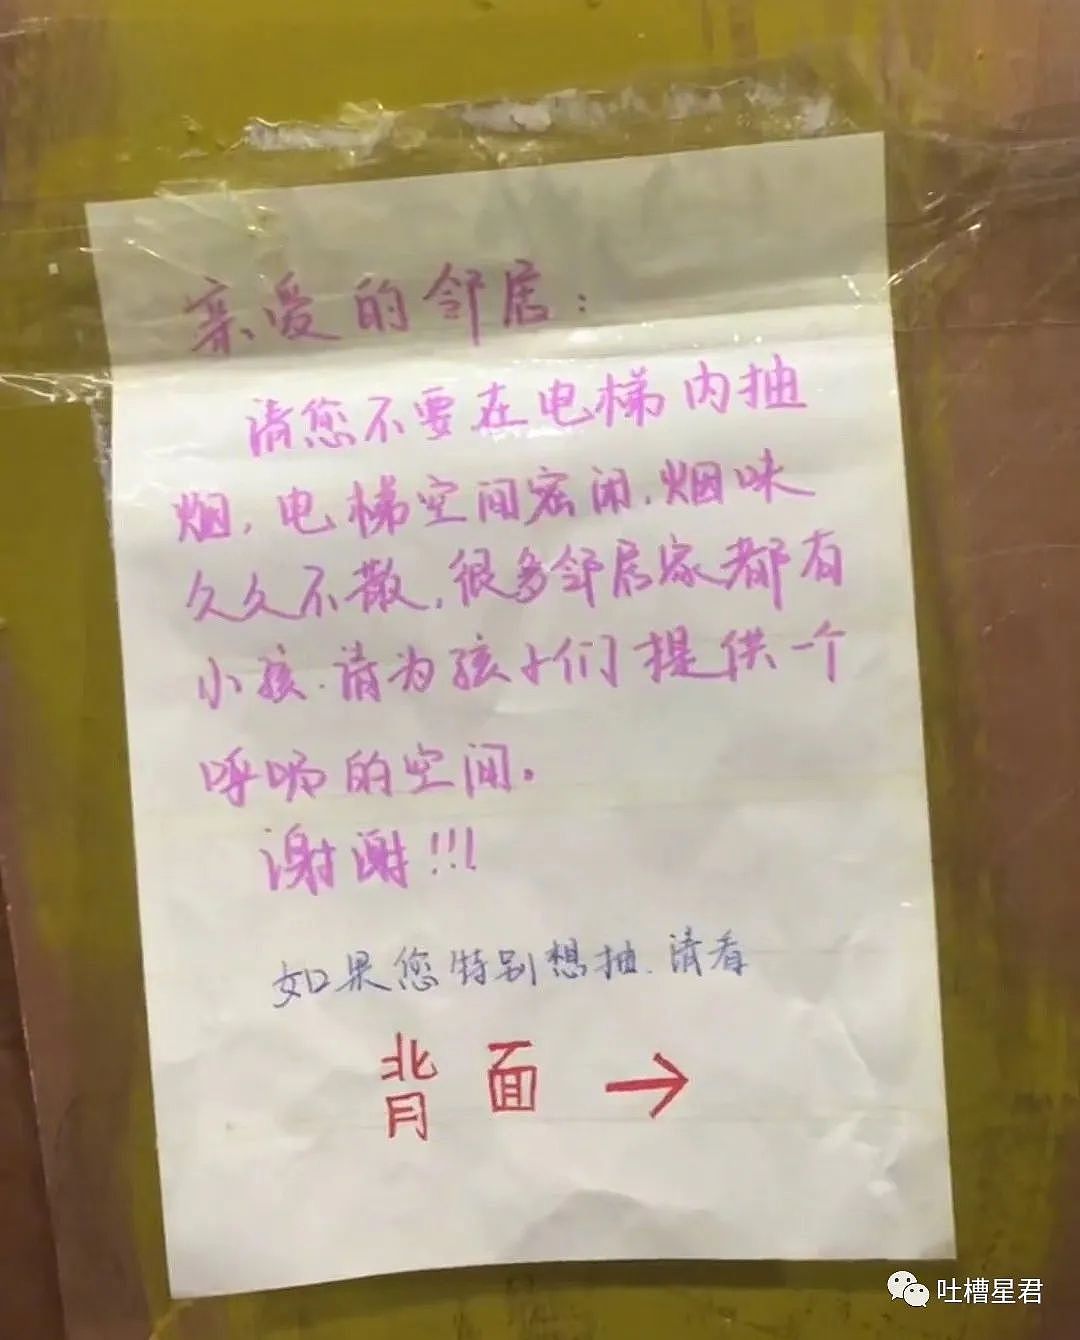 亲爱的邻居：
请您不要在电梯内抽
烟，电梯空间密闭，烟味
久久不散，很多邻居家都有
小孩．请为孩子们提供一个
呼吸的空间。
谢谢!!!
如果您特别想抽．请看
背面→
吐槽星君